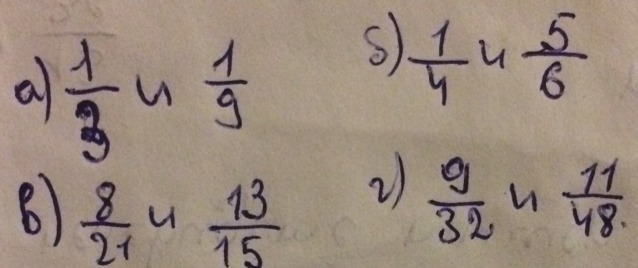 а) 1/3 и 1/9 б) 1/4 и 5/6
в) 8/21 и 13/15 г) 9/32 и 11/48.